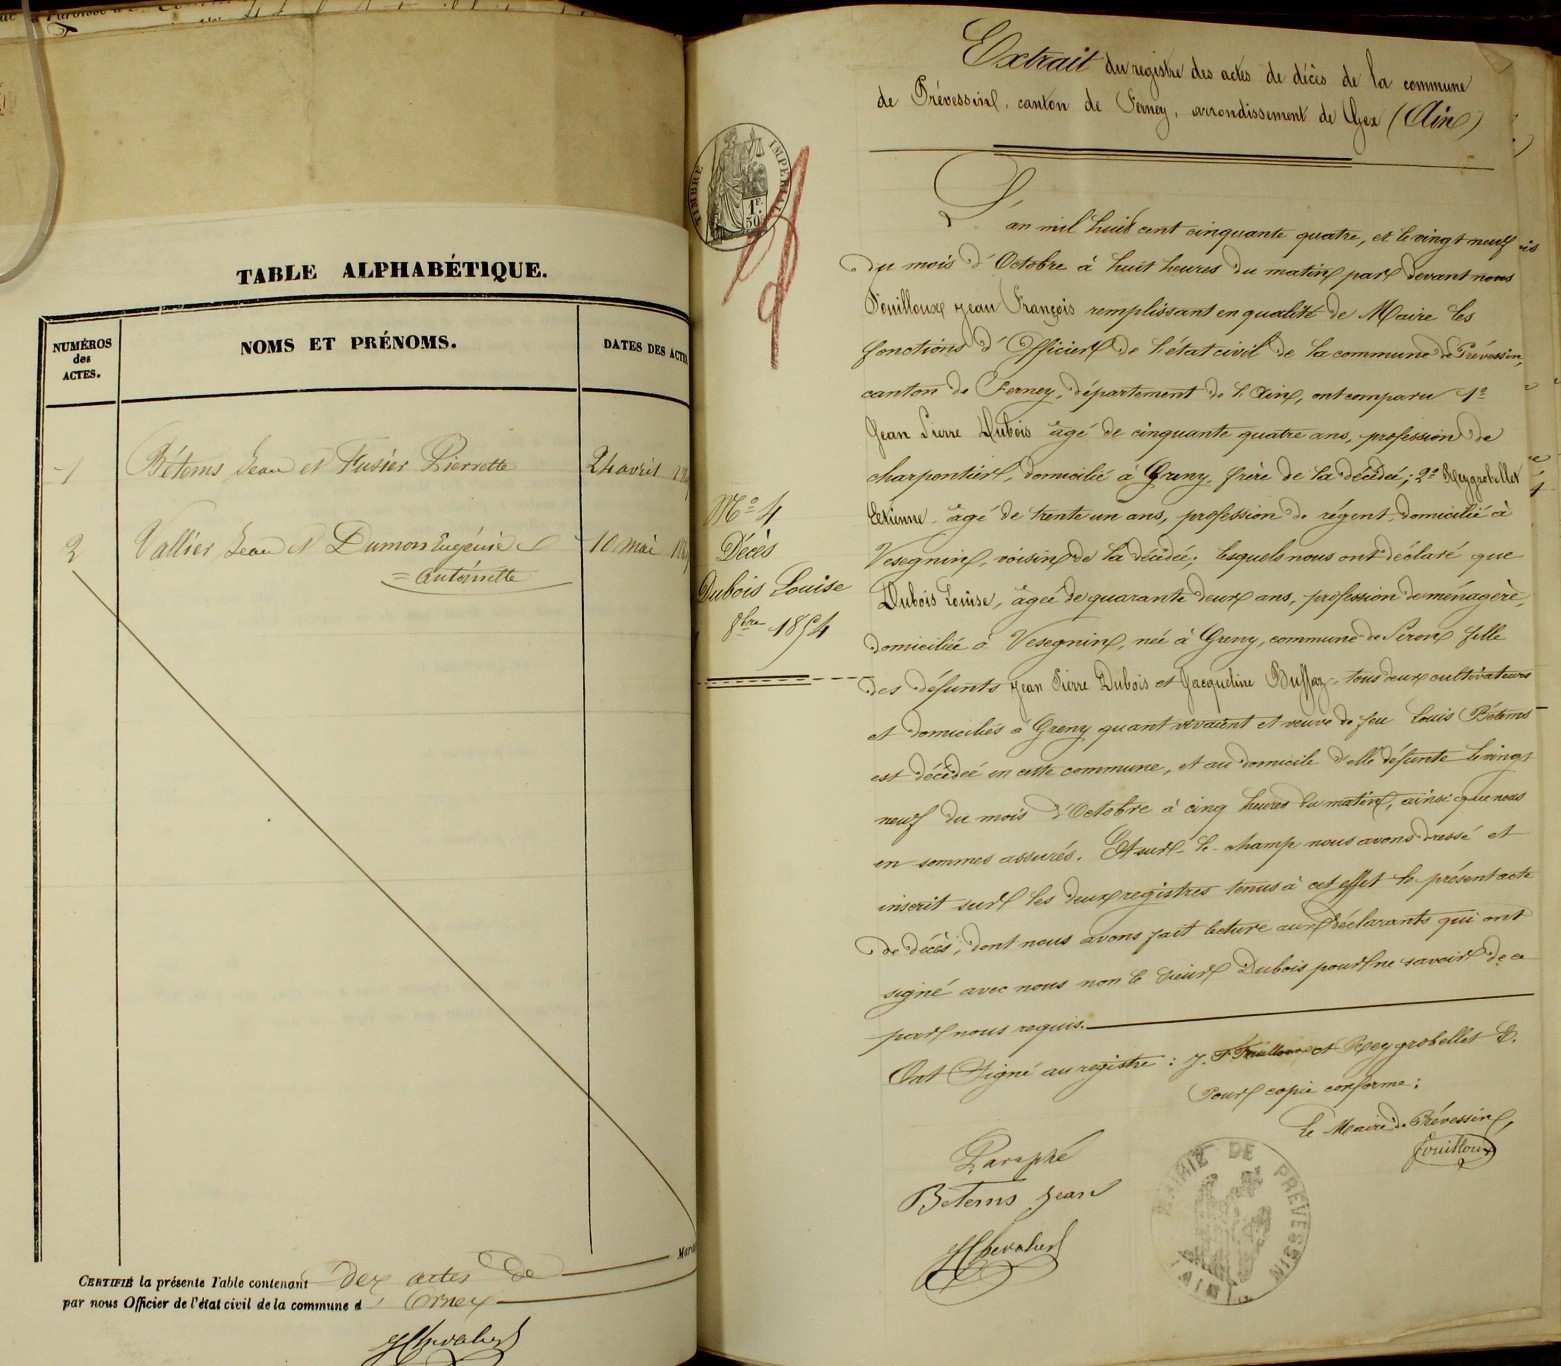 TABLE ALPHABÉTIQUE.
NUMÉROS
des
ACTES.
NOMS ET PRÉNOMS.
DATES DES ACTE
1
Bétems Jean et Fusier Pierrette
24 avril
2
Vallier Jean et Dumon Eugénie
= Antoinette
10 mai
CERTIFIÉ la présente Table contenant dex actes de
par nous Officier de l'état civil de la commune d'Ornex
Chevalier
Extrait du registre des actes de décès de la commune
de Prévessin, canton de Ferney, arrondissement de Gex (Ain)
TIMBRE IMPERIAL
1F.
50
L'an mil huit cent cinquante quatre, et le vingt neuf
du mois d'Octobre à huit heures du matin par devant nous
Fouilloux Jean François remplissant en qualité de Maire les
fonctions d'Officier de l'état civil de la commune de Prévessin,
canton de Ferney, département de l'Ain, ont comparu 1º
Jean Pierre Dubois âgé de cinquante quatre ans, profession de
charpentier, domicilié à Greny, frère de la décédée; 2º Reygrobellet
Etienne âgé de trente un ans, profession de régent domicilié à
Vesegnin, voisin de la décédée; lesquels nous ont déclaré que
Dubois Louise, âgée de quarante deux ans, profession de ménagère,
domiciliée à Vesegnin, née à Greny, commune de Peron fille
des défunts Jean Pierre Dubois et Jacqueline Buffaz, tous deux cultivateurs
et domiciliés à Greny quant vivaient et veuve de feu Louis Bétems
est décédée en cette commune, et au domicile d'elle défunte le vingt
neuf du mois d'Octobre à cinq heures du matin, ainsi que nous
en sommes assurés. Et sur-le-champ nous avons dressé et
inscrit sur les deux registres tenus à cet effet le présent acte
de décès, dont nous avons fait lecture aux déclarants qui ont
signé avec nous non le sieur Dubois pour ne savoir de ce
par nous requis.
Ont Signé au registre: J. F. Fouilloux et Reygrobellet E.
Pour copie conforme:
Le Maire de Prévessin,
Fouilloux
Nº 4
Décès
Dubois Louise
8bre 1854
Paraphé
Betems Jean
Chevalier
MAIRIE DE PREVESSIN
(AIN)